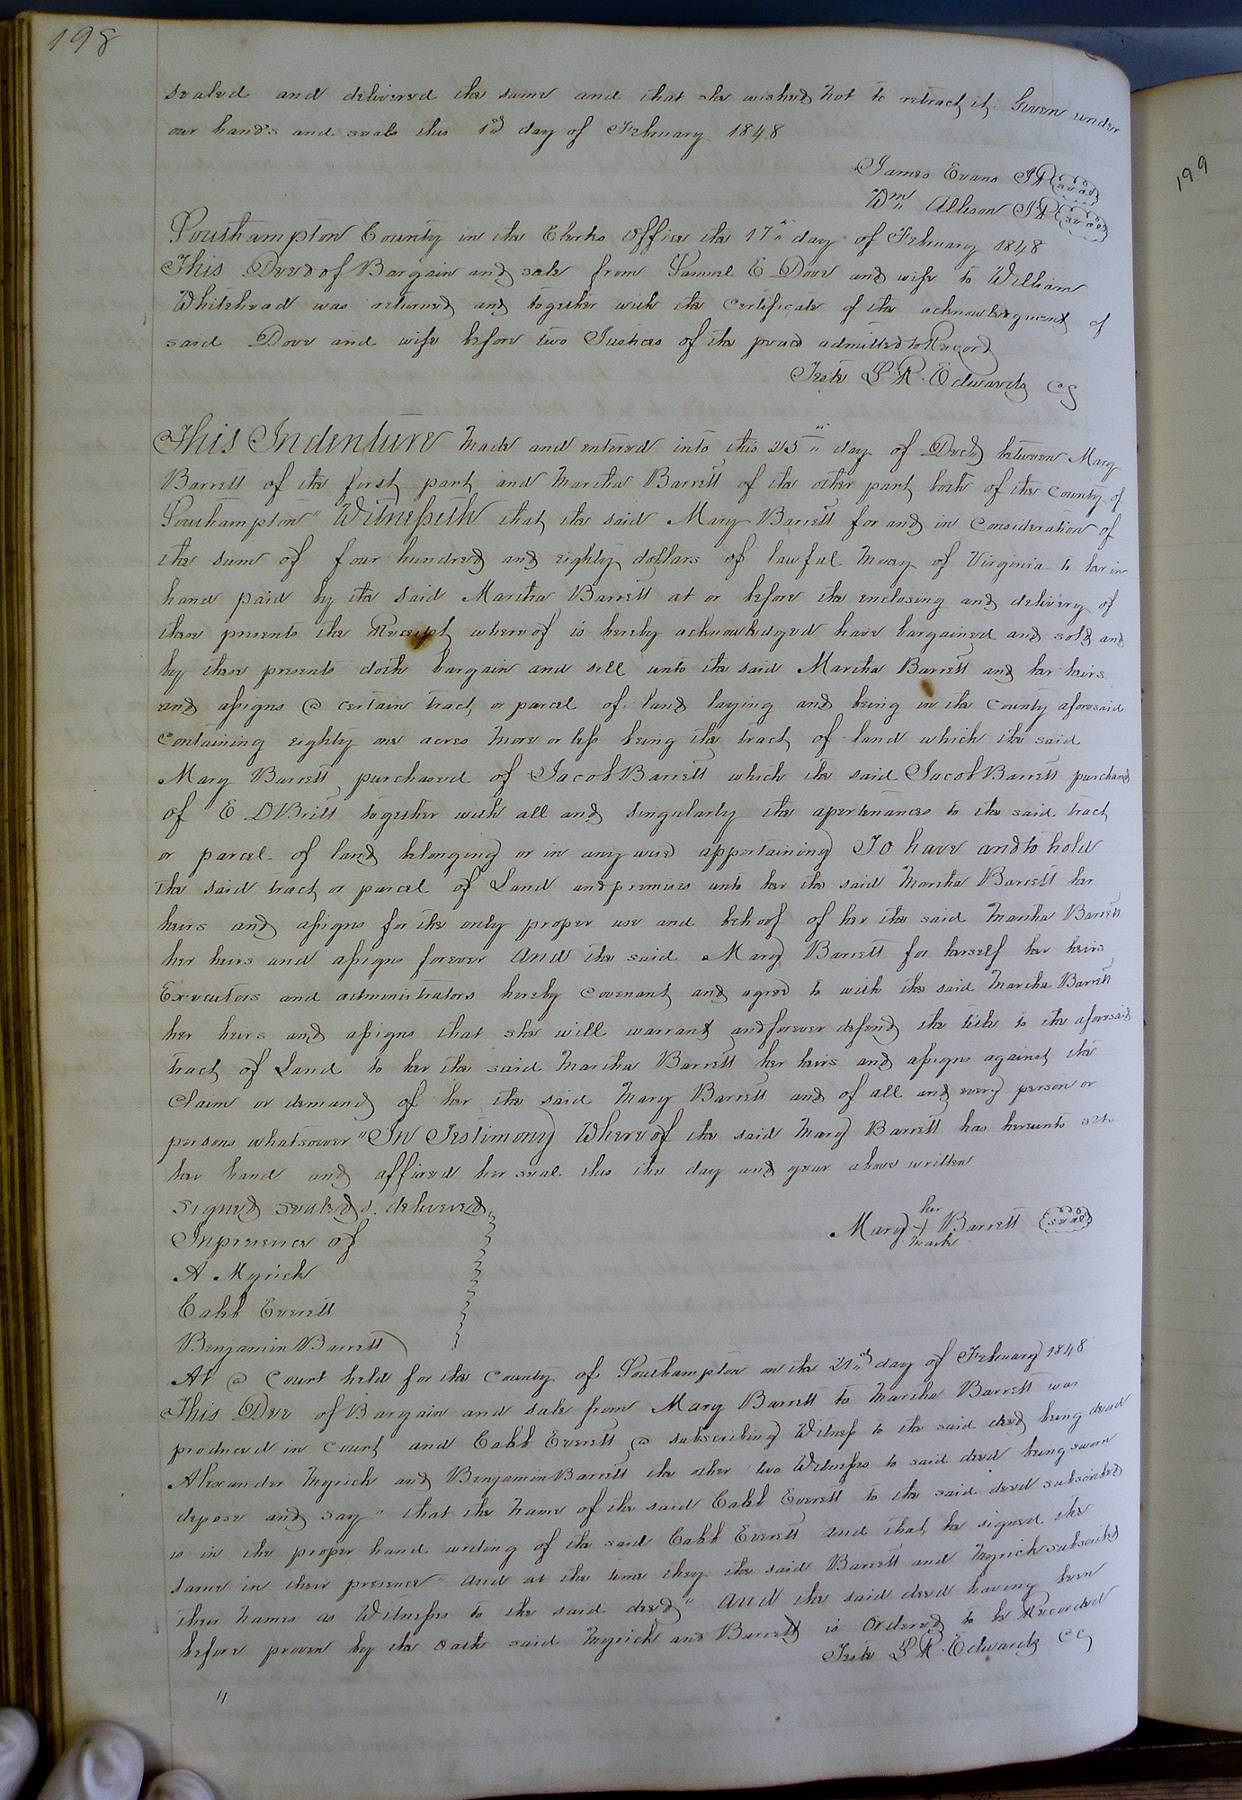 198
sealed and delivered the same and that she wished not to retract it. Given under
our hands and seals this 1st day of February 1848
James Evans JP (seal)
Wm Allison JP (seal)
Southampton County in the Clerks Office the 17th day of February 1848
This Deed of Bargain and sale from Samuel E Dove and wife to William
Whitehead was returned and together with the certificate of the acknowledgment of
said Dove and wife before two Justices of the peace admitted to Record
Teste L R. Edwards CC
This Indenture made and entered into this 25th day of Decr between Mary
Barrett of the first part and Martha Barrett of the other part both of the County of
Southampton " Witnesseth that the said Mary Barrett for and in consideration of
the sum of four hundred and eighty dollars of lawful money of Virginia to her in
hand paid by the said Martha Barrett at or before the enclosing and delivery of
these presents the Receipt whereof is hereby acknowledged have bargained and sold and
by these presents doth bargain and sell unto the said Martha Barrett and her heirs
and assigns a certain tract or parcel of land laying and being in the County aforesaid
Containing eighty one acres more or less being the tract of land which the said
Mary Barrett purchased of Jacob Barrett which the said Jacob Barrett purchased
of E D Britt together with all and singularly the apertenances to the said tract
or parcel of land belonging or in any wise appertaining To have and to hold
the said tract or parcel of Land and premises unto her the said Martha Barrett her
heirs and assigns for the only proper use and behoof of her the said Martha Barrett
her heirs and assigns forever And the said Mary Barrett for herself her heirs
Executors and administrators hereby covenant and agree to with the said Martha Barrett
her heirs and assigns that she will warrant and forever defend the title to the aforesaid
tract of Land to her the said Martha Barrett her heirs and assigns against the
Claim or demand of her the said Mary Barrett and of all and every person or
persons whatsoever " In Testimony Whereof the said Mary Barrett has hereunto set
her hand and affixed her seal this the day and year above written
Signed sealed & delivered
In presence of
her
Mary + Barrett (seal)
mark
A Myrick
Cabb Everett
Benjamin Barrett
At a Court held for the County of Southampton on the 21st day of February 1848
This Dee of Bargain and sale from Mary Barrett to Martha Barrett was
produced in Court and Cabb Everett a subscribing Witness to the said deed being dead
Alexander Myrick and Benjamin Barrett the other two Witnesses to said deed being sworn
depose and say " that the name of the said Cabb Everett to the said deed subscribed
is in the proper hand writing of the said Cabb Everett and that he signed the
same in their presence " and at the time they the said Barrett and Myrick subscribed
their names as Witnesses to the said deed " And the said deed having been
before proven by the oath said Myrick and Barrett is Ordered to be Recorded
Teste L R. Edwards CC
"
199